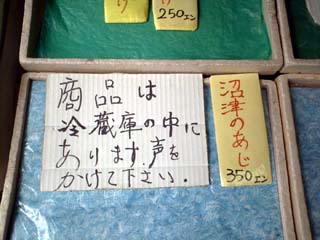 け
け
250エン
商品は
冷蔵庫の中に
あります.声を
かけて下さい.
沼津のあじ
350エン